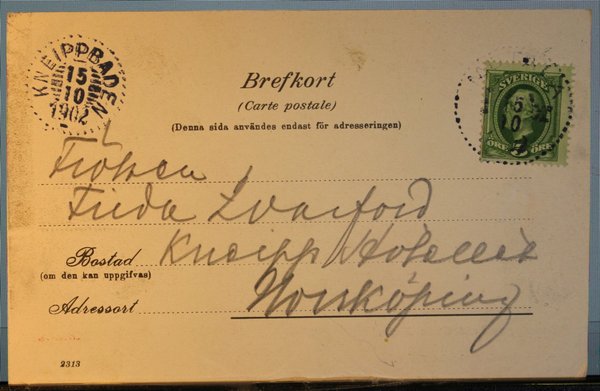 KNEIPPBADEN
15
10
1902
Brefkort
(Carte postale)
(Denna sida användes endast för adresseringen)
SVERIGE
15
10
ÖRE ÖRE
Fröken
Frida
Bostad Kneipp Hotellet
(om den kan uppgifvas)
Adressort Norrköping
2313